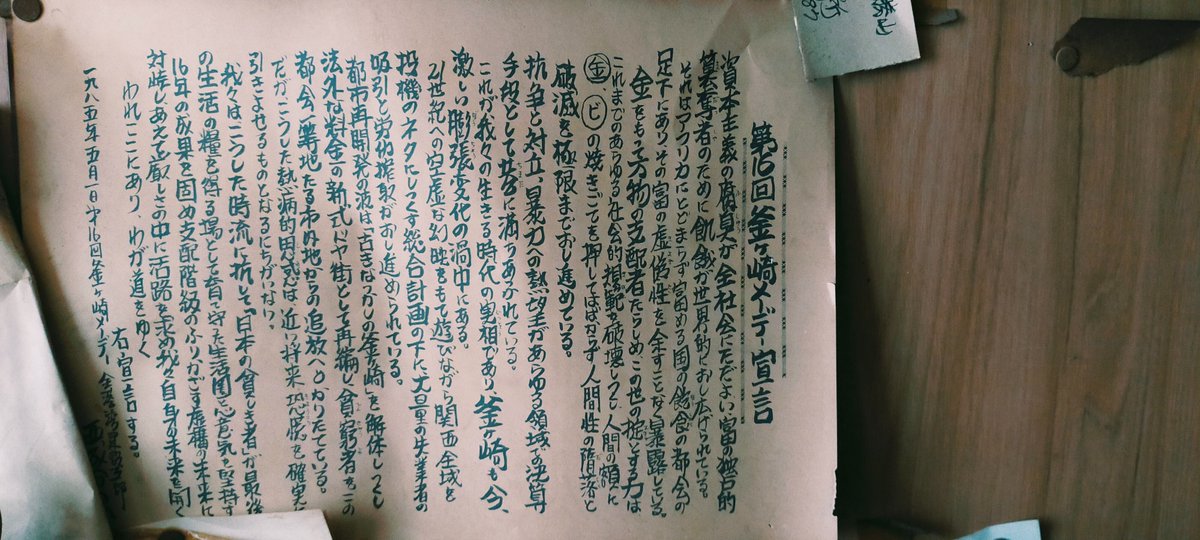 第16回釜ヶ崎メーデー宣言
資本主義の腐臭が全社会にただよい富の独占的
簒奪者のために飢餓が世界的におし広げられている。
それはアフリカにとどまらず富める国の飽食の都会の
足下にありその富の虚偽性を余すことなく暴露している。
金をもって万物の支配者たらしめこの世の掟とする力は
これまでのあらゆる社会的規範を破壊しつくし人間の額に
金 ビ の焼きごてを押してはばからず人間性の堕落と
破滅を極限までおし進めている。
抗争と対立、暴力の熱望があらゆる領域での決算
手段として共に満ちあふれている。
これが我々の生きる時代の実相であり釜ヶ崎も今、
激しい膨張変化の渦中にある。
21世紀への空虚な幻暉をもて遊びながら関西全域を
投機のネタにしつくす総合計画の下に大量の失業者の
吸引と労働搾取がおし進められている。
都市再開発の波は「古きなつかしの釜ヶ崎」を解体しつくし
法外な料金の新式ドヤ街として再編し貧窮者を一の
都会一等地たる市内地からの追放へとかりたてている。
だがこうした熱病的日式は近い将来「恐慌」を確実に
引きよせるものとなるにちがいない。
我々はこうした時流に抗して「日本の貧しき者」が最後
の生活の糧を得る場として育て守った生活圏の心意気を堅持す
16年の成果を固め支配階級のふりかざす虚構の未来に
対峙しあえて厳しさの中に活路を求め我々自身の未来を開く
われここにあり、わが道をゆく
右宣言する。
一九八五年五月一日 第16回釜ヶ崎メーデー